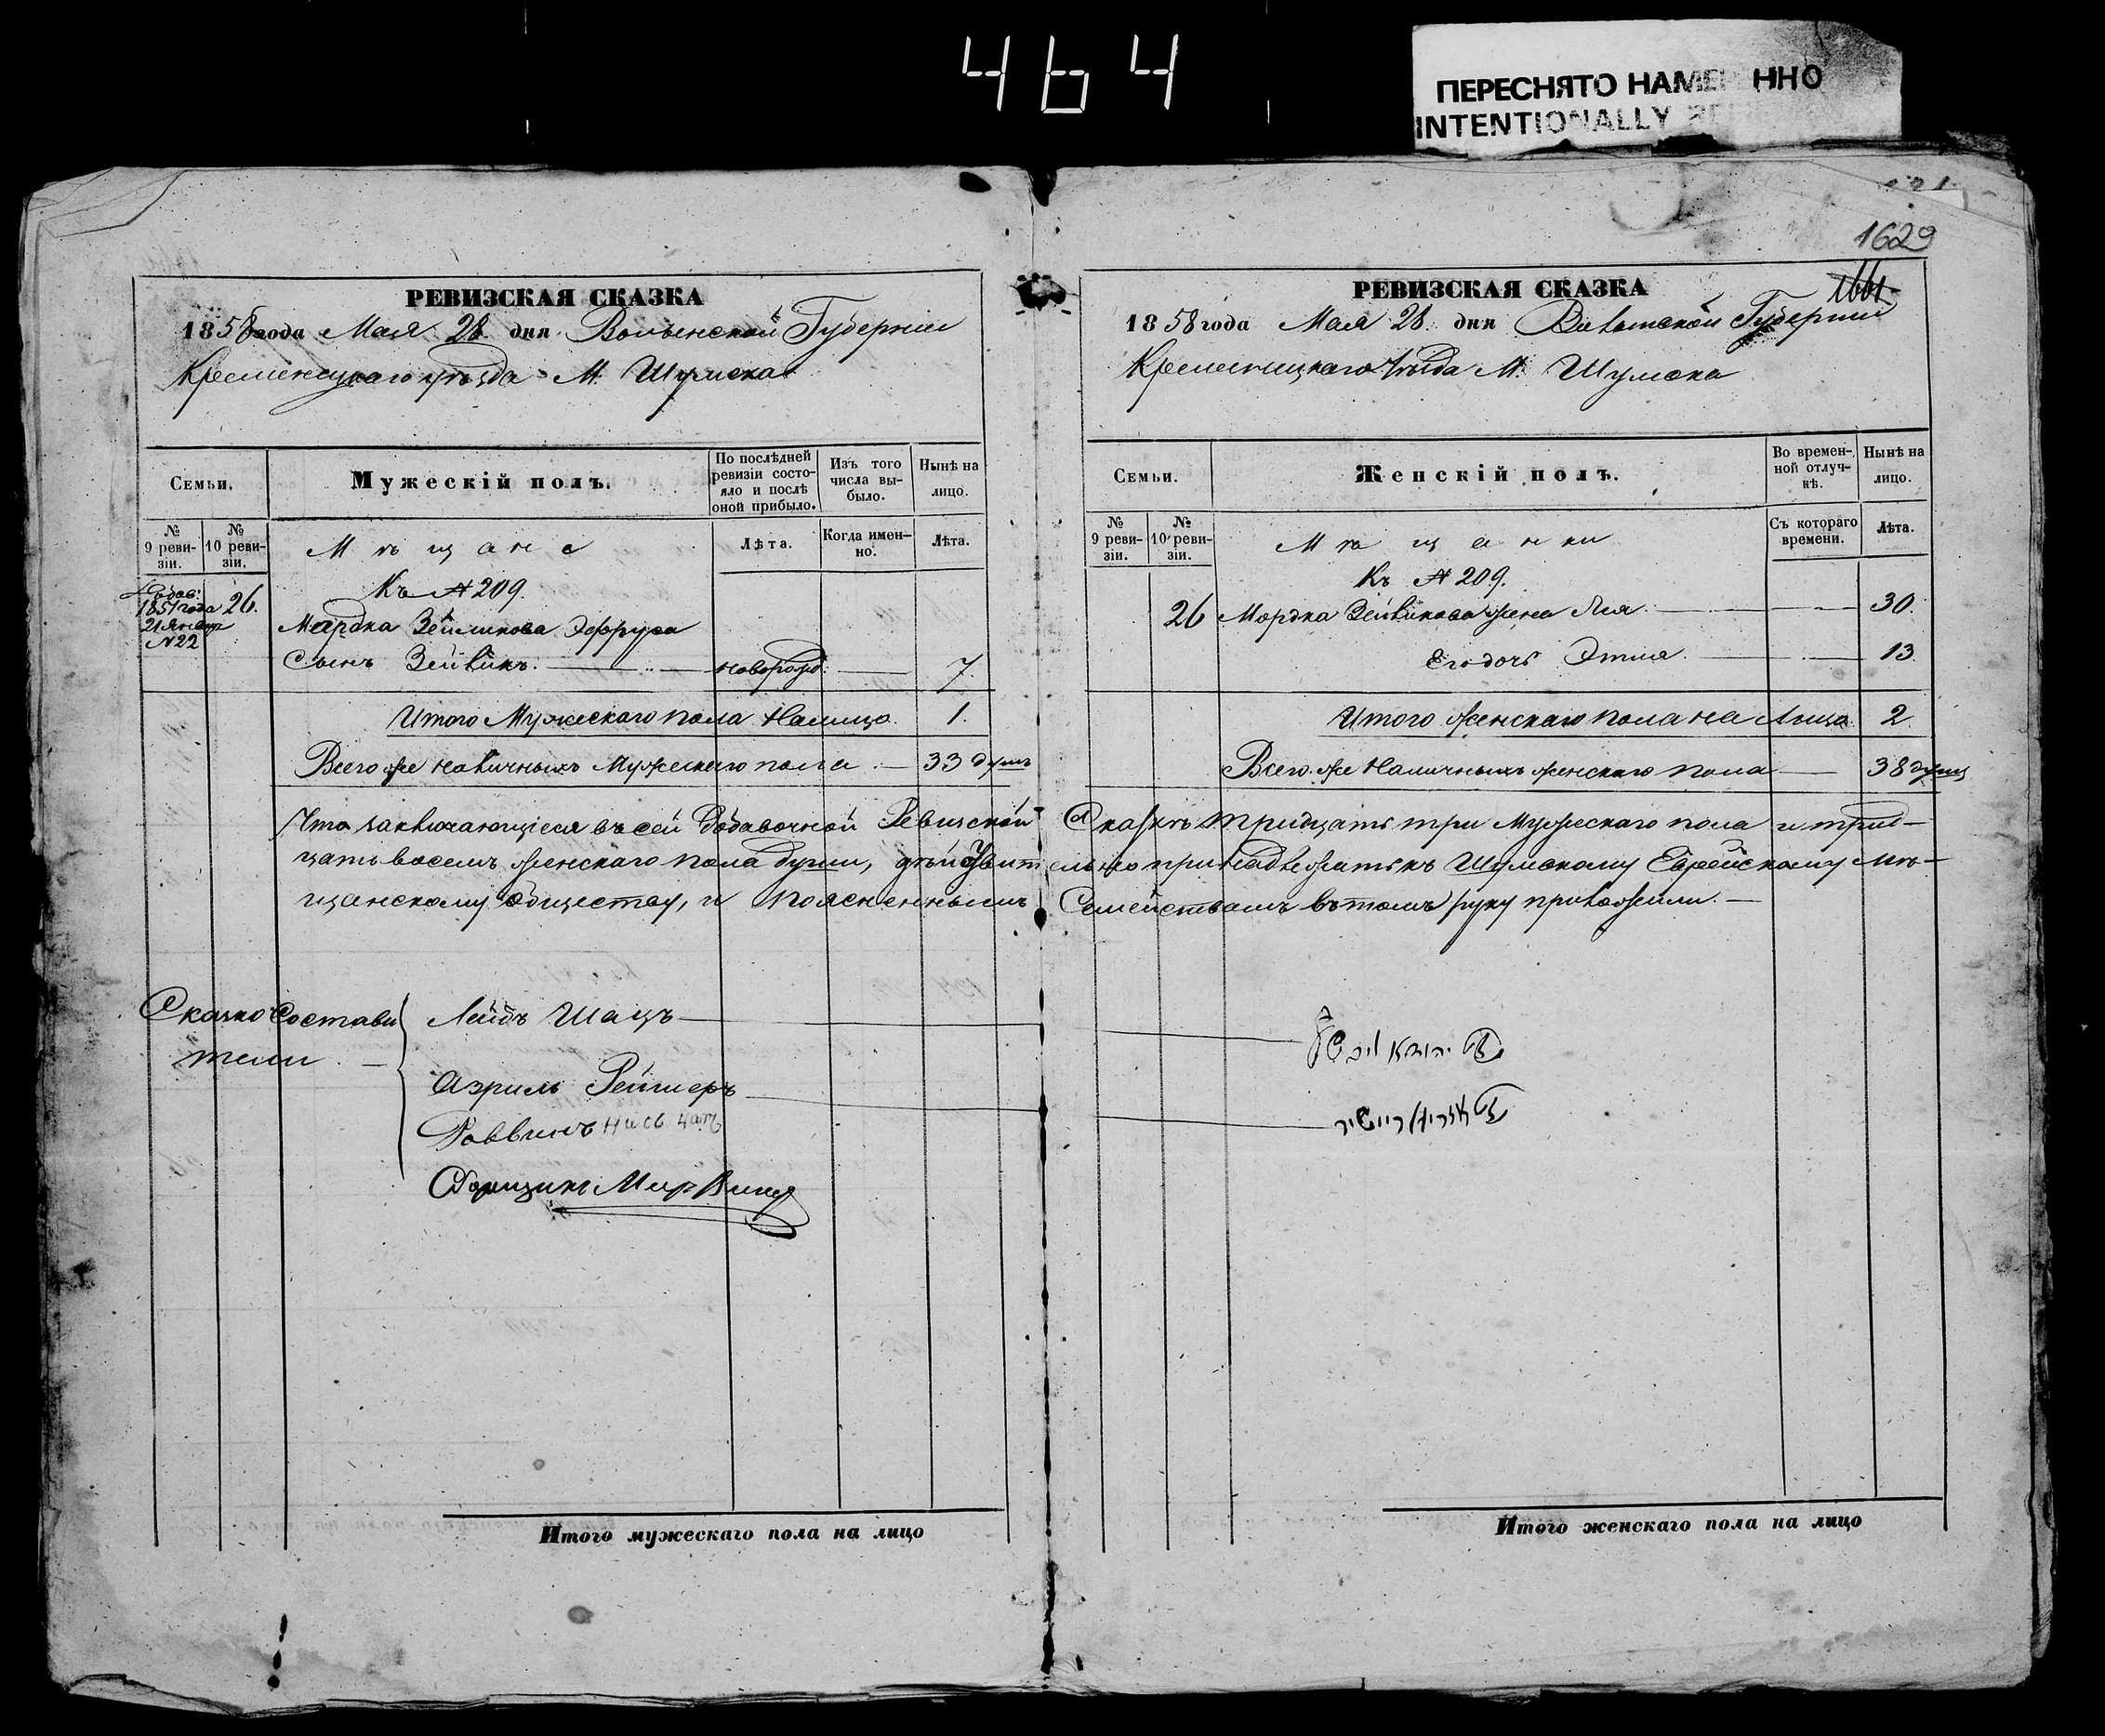 464
ПЕРЕСНЯТО НАМЕ ННО
INTENTIONALLY
1629
РЕВИЗСКАЯ СКАЗКА
1858 года Мая 28 дня Волынской Губернии
Кременецкаго уѣзда М. Шумска
Семьи.
Мужескій полъ.
По послѣдней ревизіи состояло и послѣ оной прибыло.
Изъ того числа выбыло.
Нынѣ на лицо.
№ 9 ревизіи.
№ 10 ревизіи.
Мѣщане
Лѣта.
Когда именно.
Лѣта.
Къ № 209.
1851 года
26.
21 Января
№ 22
Мордка Зейликова Эфруса
Сынъ Зейликъ. новорожд. 7.
Итого Мужескаго пола Налицо. 1.
Всего же наличныхъ Мужескаго пола 33 душъ
Что заключающіеся въ сей Добавочной Ревизской
цать восемъ женскаго пола души, дѣйствит
щанскому обществу, и поясненнымъ
Сказкосостави
тели
Лейбъ Шацъ
Азриль Рейшеръ
Раввинъ
Сборщикъ Меір
Итого мужескаго пола на лицо
РЕВИЗСКАЯ СКАЗКА
1858 года Мая 28 дня Волынской Губернии
Кременецкаго Уѣзда М. Шумска
Семьи.
Женскій полъ.
Во временной отлучкѣ.
Нынѣ на лицо.
№ 9 ревизіи.
№ 10 ревизіи.
Мѣщанки
Съ котораго времени.
Лѣта.
Къ № 209.
26 Мордка Зейликова жена Лея 30.
Его дочь Этля. 13.
Итого женскаго пола на Лицо 2.
Всего же Наличныхъ женскаго пола 38 душъ
Сказкѣ тридцать три Мужескаго пола и трид-
ельно принадлежатъ къ Шумскому Еврейскому Мѣ-
Семействамъ въ томъ руку приложили.
יהודא ליב
עזריאל ריישיר
Итого женскаго пола на лицо